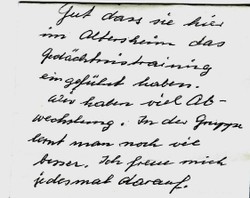 Gut dass sie hier
im Altersheim das
Gedächtnistraining
eingeführt haben.
Wir haben viel Ab-
wechslung. In der Gruppe
lernt man noch viel
besser. Ich freue mich
jedesmal darauf.